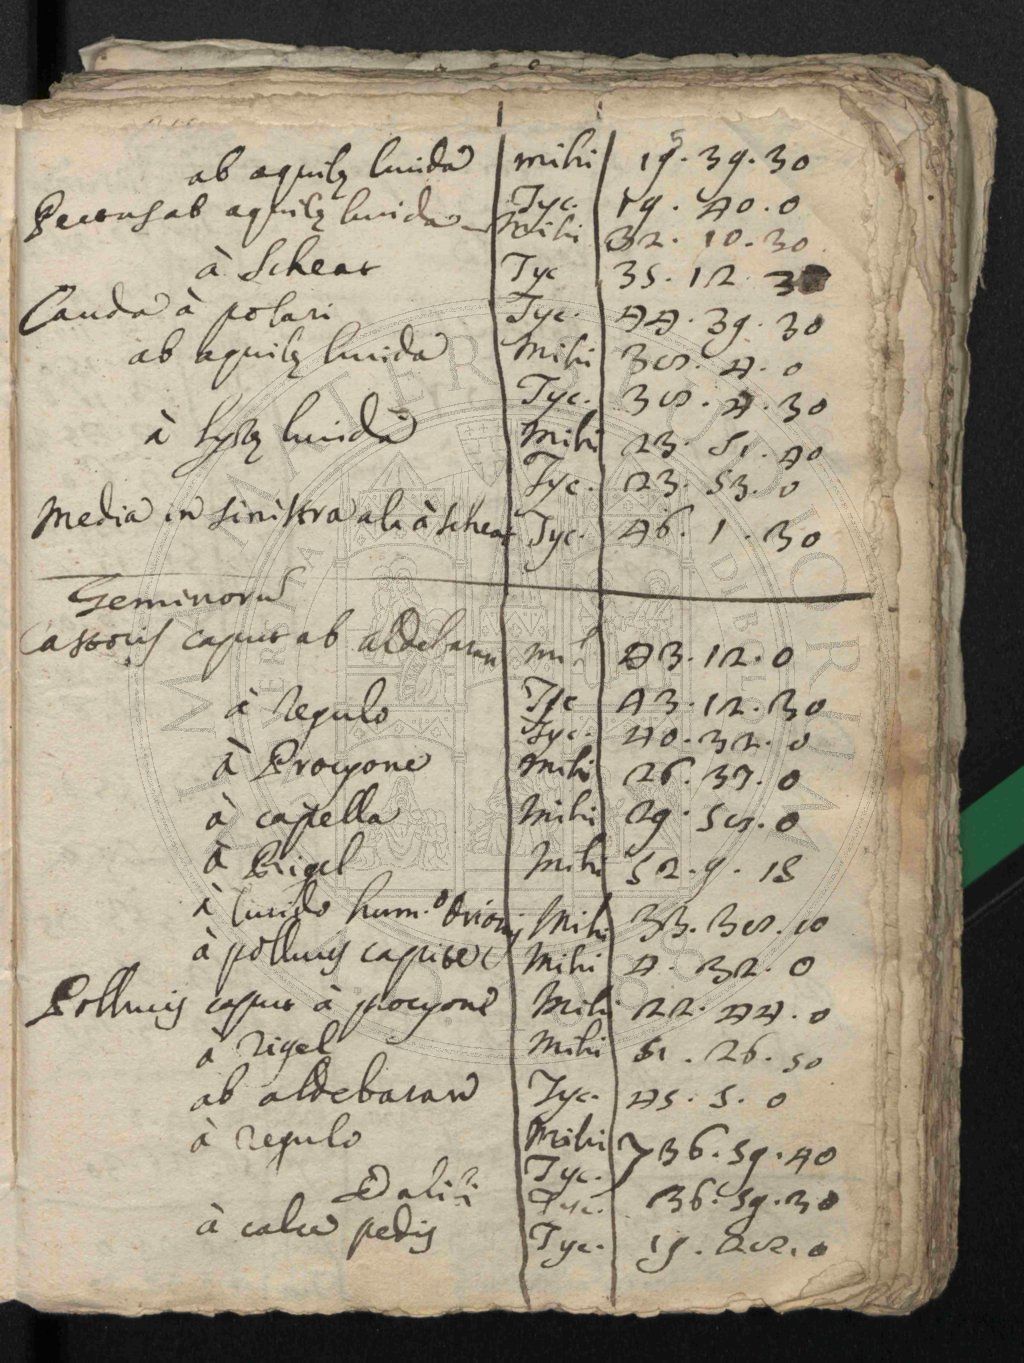 ab aquilę lucida | mihi | 19. 39. 30
Pectus ab aquilę lucida | Tyc. | 19. 40. 0
Mihi | 32. 10. 30
à Scheat | Tyc | 35. 12. 3
Cauda à polari | Tyc. | 44. 39. 30
ab aquilę lucida | Mihi | 38. 4. 0
Tyc. | 38. 4. 30
à Lyrę lucida | Mihi | 23. 51. 40
Tyc. | 23. 53. 0
Media in sinistra ala à Scheat | Tyc. | 46. 1. 30
Geminorū
Castoris caput ab aldebaran | mih | 43. 12. 0
Tyc | 43. 12. 30
à regulo | Tyc. | 40. 32. 0
à Procyone | mihi | 26. 37. 0
à capella | Mihi | 29. 58. 0
à Rigel | Mihi | 52. 9. 15
à lucido hum.o Orionis | Mihi | 33. 38. 10
à pollucis capite | Mihi | 4. 32. 0
Pollucis caput à procyone | Mihi | 22. 44. 0
à rigel | Mihi | 51. 26. 50
ab aldebaran | Tyc. | 45. 5. 0
à regulo | Mihi | 36. 59. 40
Tyc. | 36. 59. 30
à calce pedis | Tyc. | 19. 28. 0